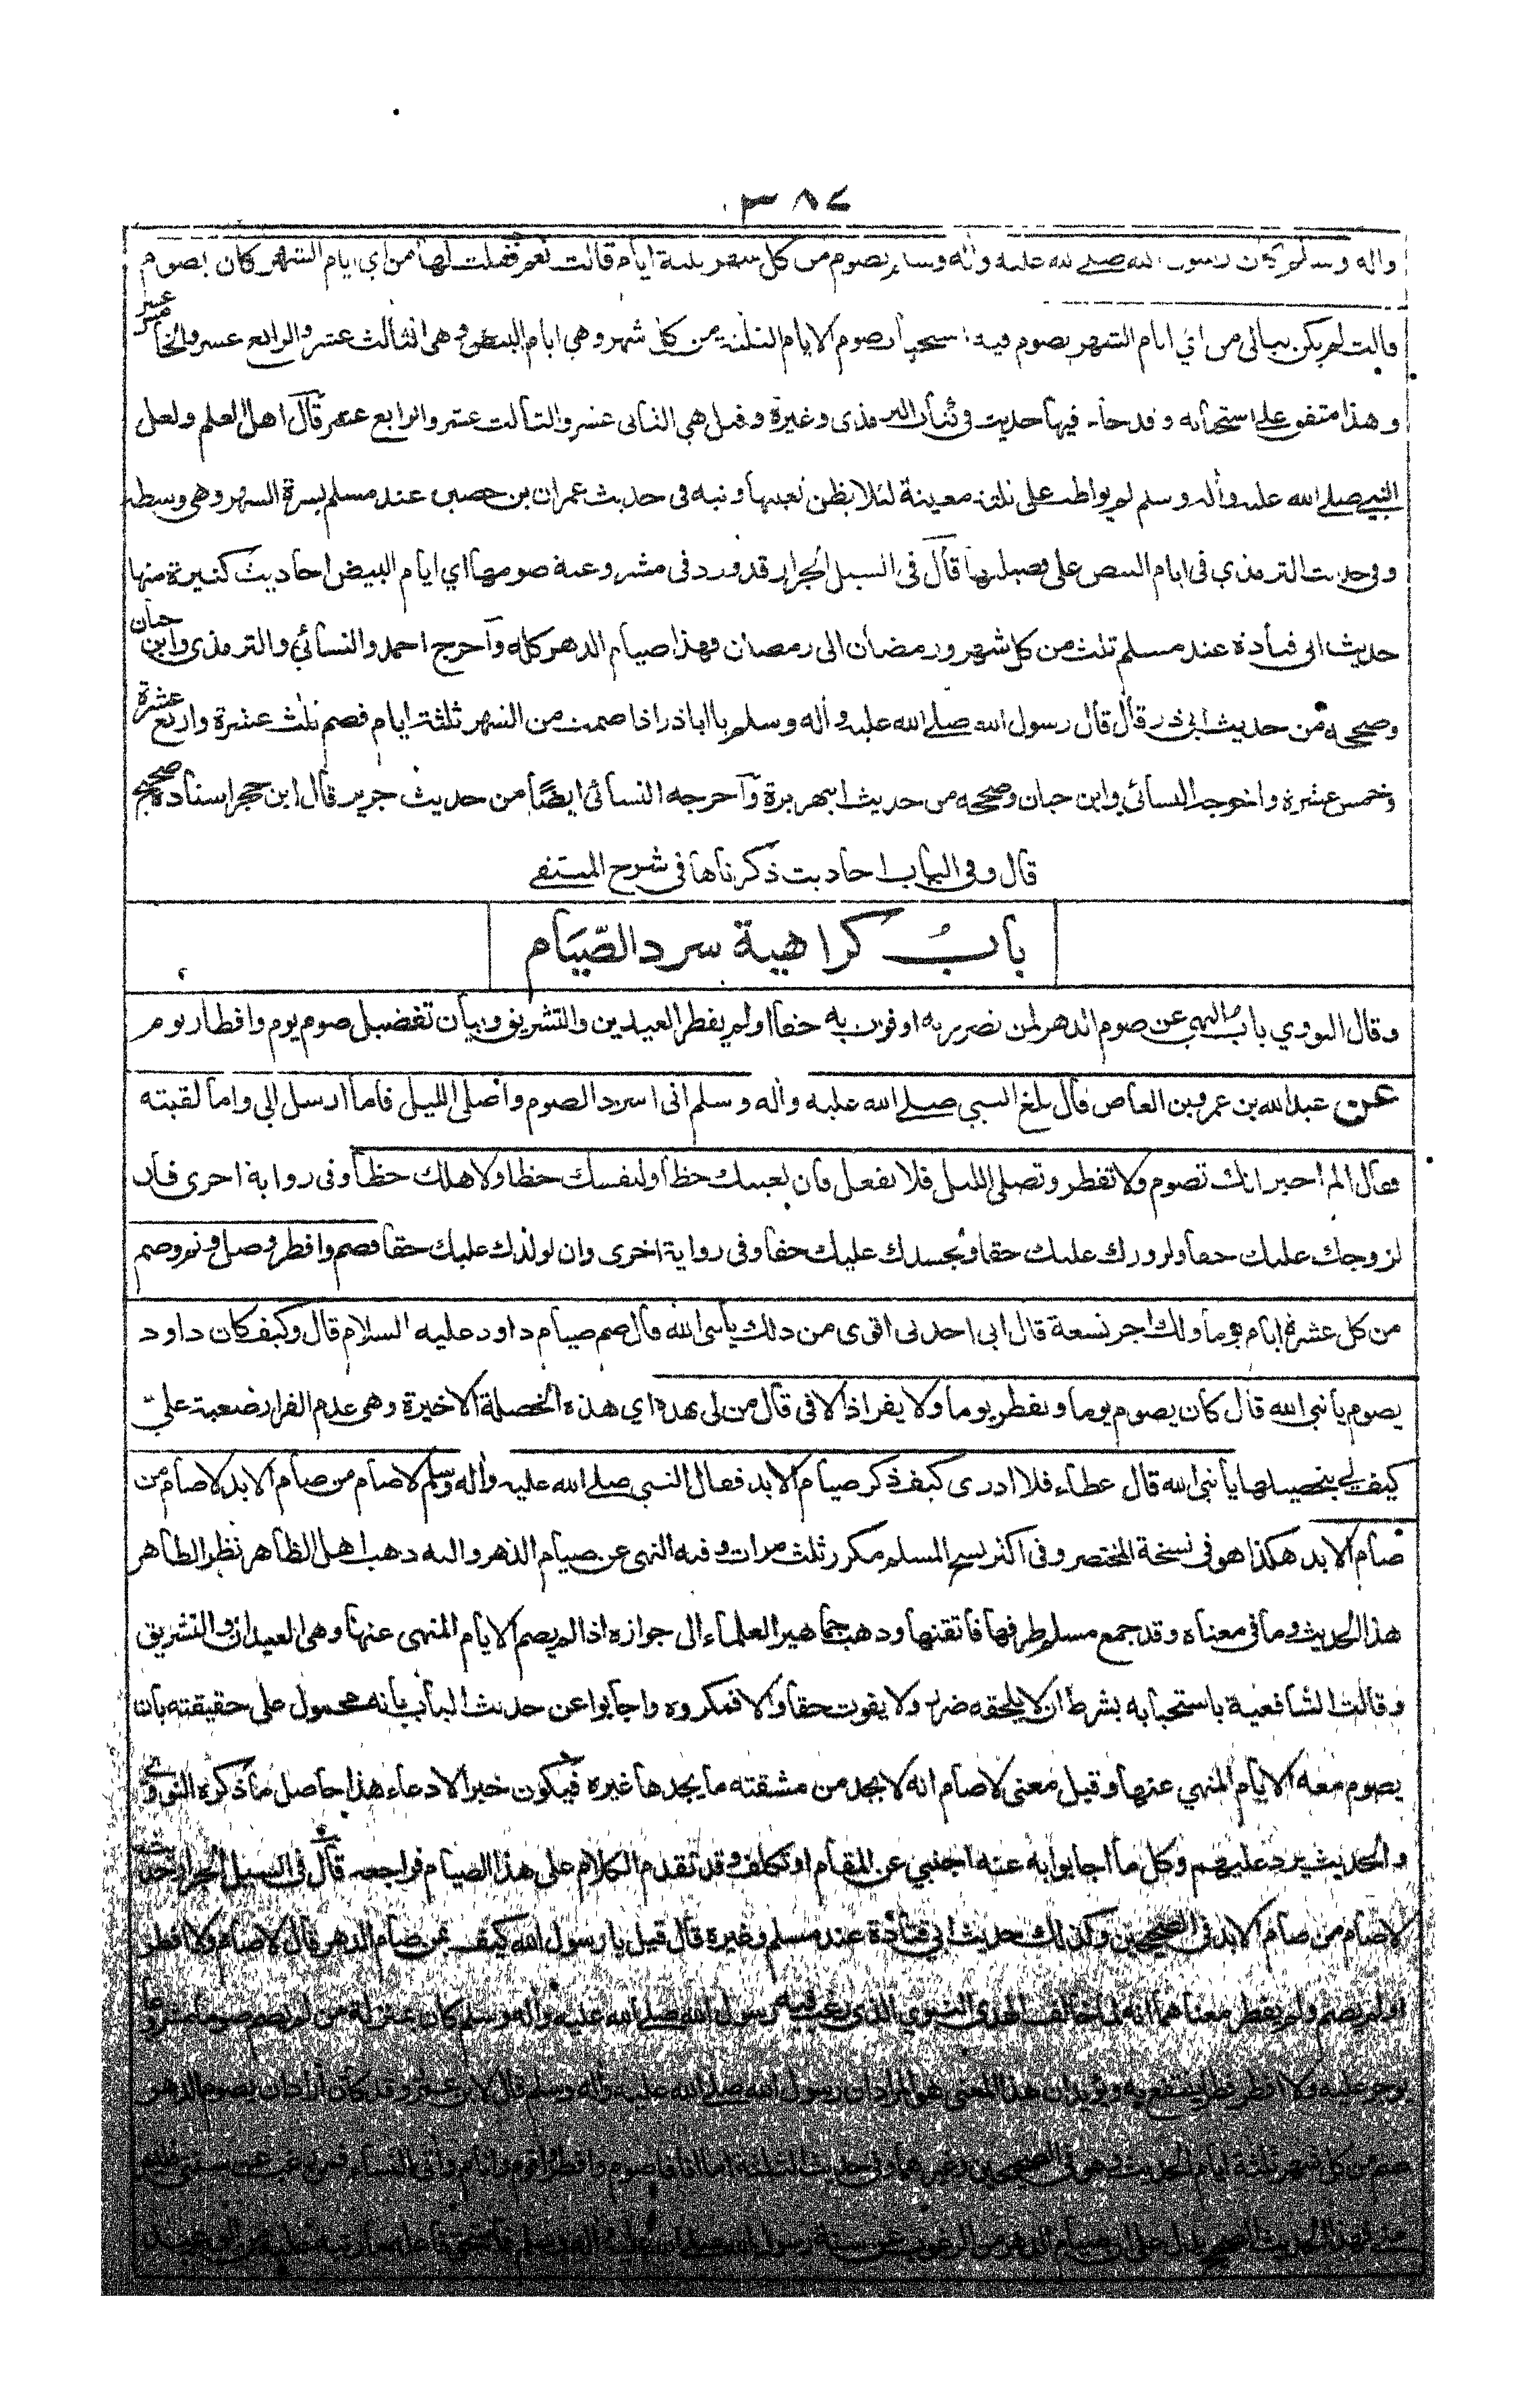 ٣٨٧
واله وسلم يصوم من كل شهر ثلثة ايام قالت نعم فقلت لها من اي ايام الشهر كان يصوم
قالت لم يكن يبالي من اي ايام الشهر يصوم فيه استحباب صوم الايام الثلثة من كل شهر وهي ايام البيض وهي الثالث عشر والرابع عشر والخامس عشر
وهذا متفق على استحبابه وقد جاء فيها حديث في كتاب الترمذى وغيرة وقيل هي الثانى عشر والثالث عشر والرابع عشر قال اهل العلم ولعل
النبي صلى الله عليه واله وسلم لم يواظب على ثلثة معينة لئلا يظن تعينها ونبه فى حديث عمران بن حصين عند مسلم بسرة الشهر وهى وسطه
وفي حديث الترمذي فى ايام البيض على فضيلتها قال فى السيل الجرار قد ورد فى مشروعية صومها اي ايام البيض احاديث كثيرة منها
حديث ابى قتادة عند مسلم ثلث من كل شهر ورمضان الى رمضان فهذا صيام الدهر كله وأخرج احمد والنسائي والترمذى وابن حبان
وصححه من حديث ابي ذر قال قال رسول الله صلى الله عليه واله وسلم يا اباذر اذا صمت من الشهر ثلثة ايام فصم ثلث عشرة واربع عشرة
وخمس عشرة واخرجه النسائي وابن حبان وصححه من حديث ابيهريرة وأخرجه النسائى ايضا من حديث جرير قال ابن حجر اسناده صحيح
قال وفي الباب احاديث ذكرناها فى شرح المنتقى
باب كراهية سرد الصيام
وقال النووي باب النهى عن صوم الدهر لمن تضرر به او فوت به حقا او لم يفطر العيدين والتشريق وبيان تفضيل صوم يوم وافطار يوم
عن عبد الله بن عمرو بن العاص قال بلغ النبى صلى الله عليه واله وسلم انى اسرد الصوم واصلى الليل فاما ارسل الي واما لقيته
فقال الم اخبر انك تصوم ولا تفطر وتصلي الليل فلا تفعل فان لعينك حظا ولنفسك حظا ولاهلك حظا وفى رواية اخرى فان
لزوجك عليك حقا ولزورك عليك حقا ولجسدك عليك حقا وفى رواية اخرى وان لولدك عليك حقا فصم وافطر وصل ونم وصم
من كل عشرة ايام يوما ولك اجر تسعة قال انى اجدنى اقوى من ذلك يا نبى الله قال صم صيام داود عليه السلام قال وكيف كان داود
يصوم يا نبي الله قال كان يصوم يوما ويفطر يوما ولا يفر اذا لاقى قال من لى بهذه اي هذه الخصلة الاخيرة وهى عدم الفرار صعبة على
كيف لي بتحصيلها يا نبي الله قال عطاء فلا ادرى كيف ذكر صيام الابد فقال النبى صلى الله عليه واله وسلم لا صام من صام الابد لا صام من
صام الابد هكذا هو فى نسخة المختصر وفى اكثر نسخ المسلم مكرر ثلث مرات وفيه النهى عن صيام الدهر واليه ذهب اهل الظاهر نظر الظاهر
هذا الحديث وما فى معناه وقد جمع مسلم طرفها فاتقنها وذهب جماهير العلماء الى جوازه اذا لم يصم الايام المنهى عنها وهى العيدان والتشريق
وقالت الشافعية باستحبابه بشرط ان لا يلحقه ضرر ولا يفوت حقا والا فمكروه واجابوا عن حديث الباب بانه محمول على حقيقته بان
يصوم معه الايام المنهي عنها وقيل معنى لا صام انه لا يجد من مشقته ما يجدها غيره فيكون خبرا لا دعاء هذا حاصل ما ذكره النووي
والحديث يرد عليهم وكل ما اجابوا به عنه اجنبي عن المقام او تكلف وقد تقدم الكلام على هذا الصيام فراجعه قال فى السيل الجرار وحديث
لا صام من صام الابد فى الصحيحين وكذلك حديث ابي قتادة عند مسلم وغيره قال قيل يا رسول الله كيف بمن صام الدهر قال لا صام ولا افطر
او لم يصم ولم يفطر معناهما انه لما خالف الهدي النبوي الذي رغب فيه رسول الله صلى الله عليه واله وسلم كان بمنزلة من لم يصم صوما مشروعا
يوجر عليه ولا افطر فطرا ينتفع به ويؤيد ان هذا المعنى هو المراد ان رسول الله صلى الله عليه واله وسلم قال لابن عمرو وقد كان اراد ان يصوم الدهر
صم من كل شهر ثلثة ايام الحديث وهو فى الصحيحين وغيرهما وفى حديث الثلثة اما انا فاصوم وافطر واقوم وانام واتى النساء فمن رغب عن سنتي فليس